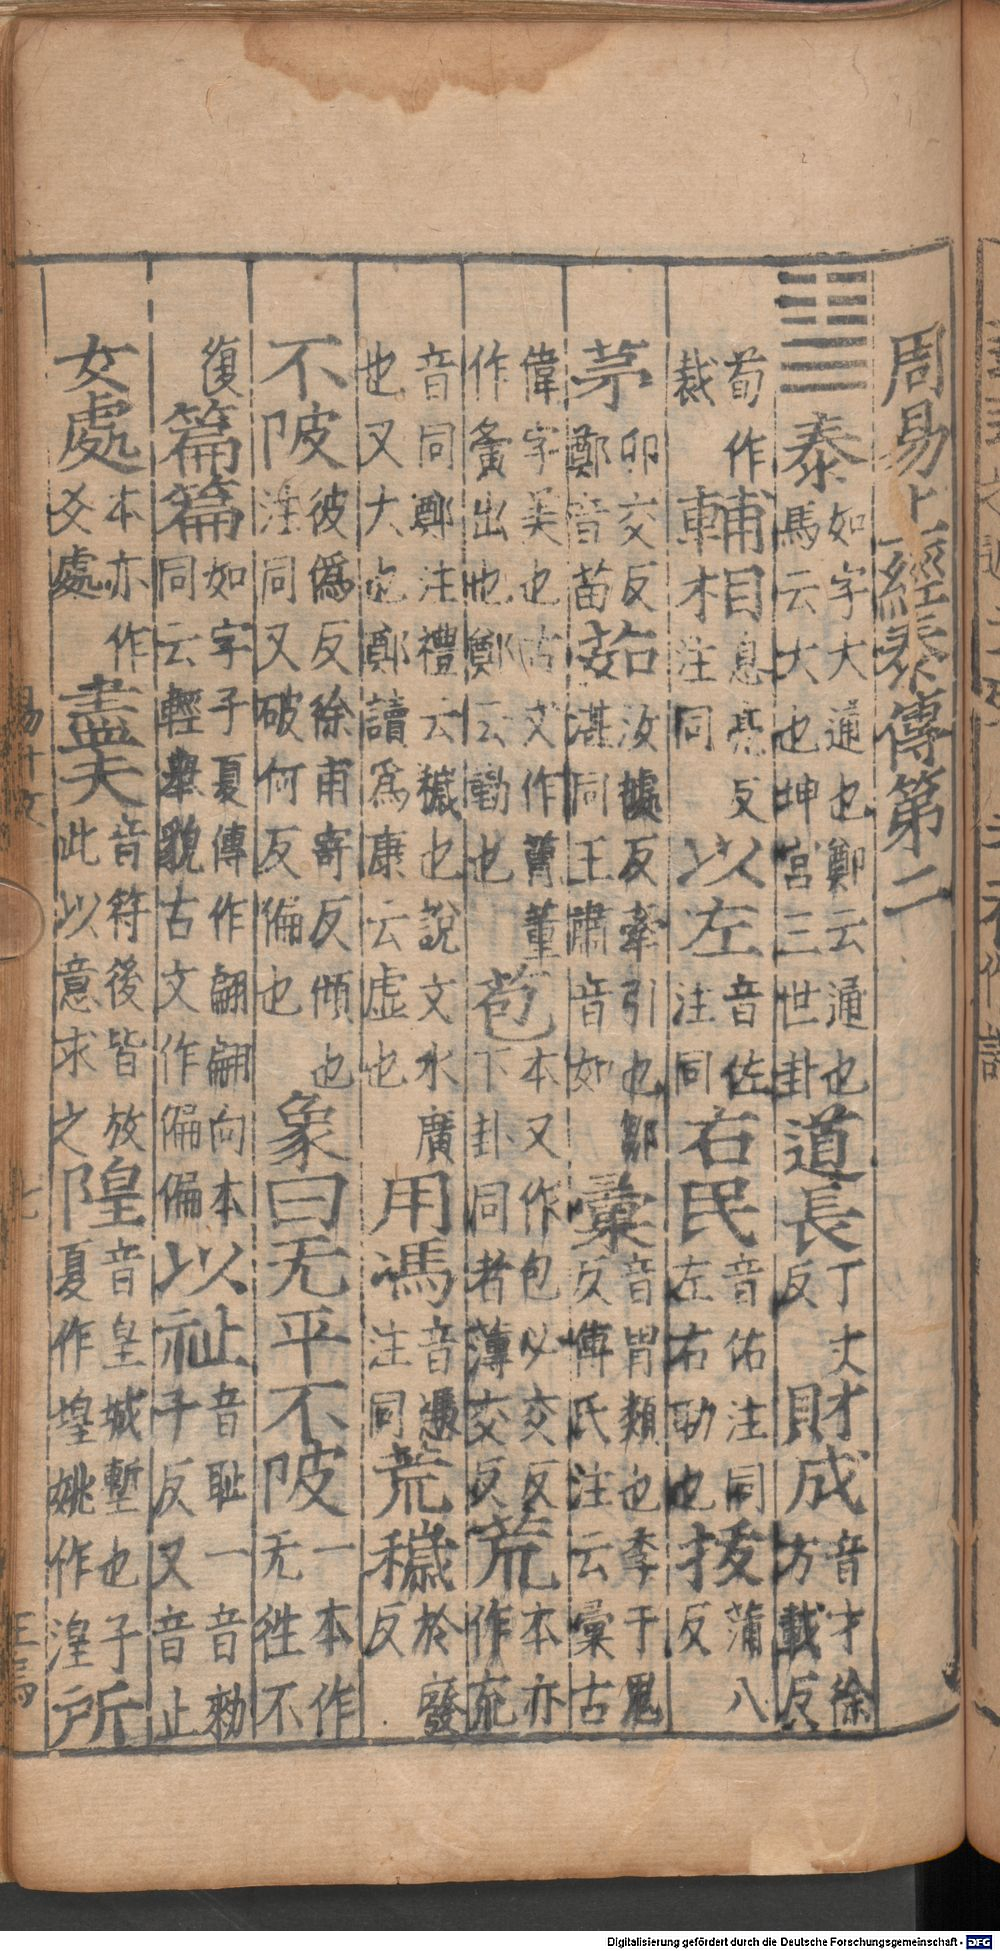 周易上經泰傳第二
䷊泰如字大通也鄭云通也馬云大也坤宮三世卦道長丁丈反財成音才徐才載反
荀作裁輔相息亮反注同以左音佐注同右民音佑注同左右助也拔蒲八反
茅卯交反鄭音苗茹汝據反牽引也鄒湛同王肅音如彙音胃類也李于鬼反傅氏注云彙古
偉字美也古文作曹董作夤出也鄭云勤也苞本又作包必交反下卦同者薄交反荒本亦作㐬
音同鄭注禮云穢也說文水廣也又大也鄭讀爲康云虛也用馮音憑注同荒穢於廢反
不陂彼僞反徐甫寄反傾也注同又破何反偏也象曰无平不陂一本作无徃不
復篇篇如字子夏傳作翩翩向本同云輕舉貌古文作偏偏以祉音恥一音勑子反又音止
女處本亦作爻處盡夫音符後皆放此以意求之隍音皇城塹也子夏作堭姚作湟所
易十文
七
Digitalisierung gefördert durch die Deutsche Forschungsgemeinschaft - DFG